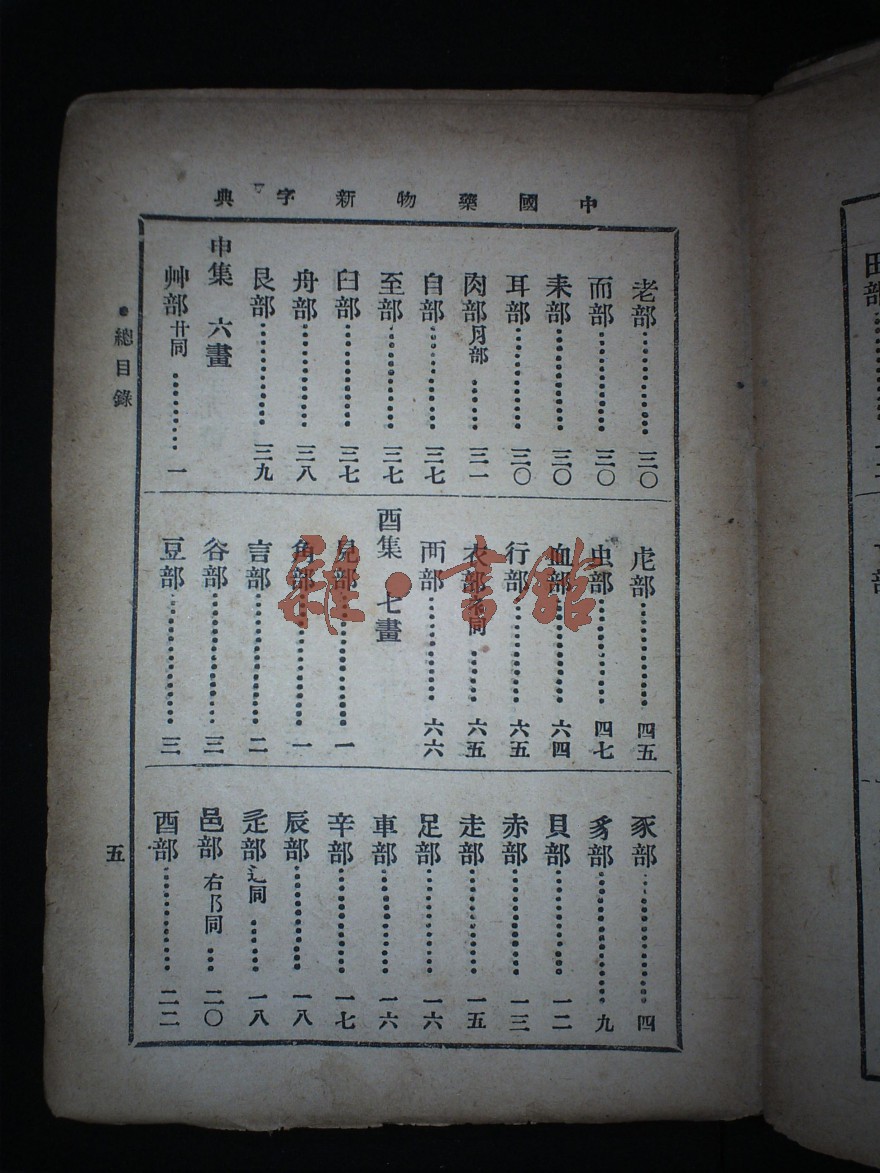 中國藥物新字典
老部 三〇
而部 三〇
耒部 三〇
耳部 三〇
肉部 月部 三一
自部 三七
至部 三七
臼部 三七
舟部 三八
艮部 三九
申集 六畫
艸部 廾同 一
虍部 四五
虫部 四七
血部 六四
行部 六五
衣部 衤同 六五
襾部 六六
酉集 七畫
見部 一
角部 一
言部 二
谷部 三
豆部 三
豕部 四
豸部 九
貝部 一二
赤部 一三
走部 一五
足部 一六
車部 一六
辛部 一七
辰部 一八
辵部 辶同 一八
邑部 右阝同 二〇
酉部 二二
總目錄
五
雜·書館
田部